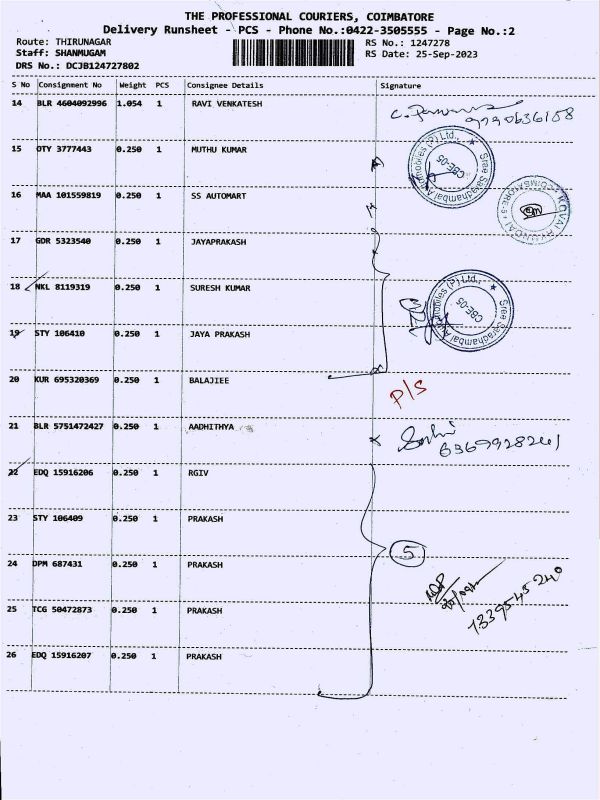 THE PROFESSIONAL COURIERS, COIMBATORE
Delivery Runsheet - PCS - Phone No.:0422-3505555 - Page No.:2
Route: THIRUNAGAR
RS No.: 1247278
Staff: SHANMUGAM
RS Date: 25-Sep-2023
DRS No.: DCJB124727802
S No Consignment No Weight PCS Consignee Details Signature
14 BLR 4604092996 1.054 1 RAVI VENKATESH
9790636158
15 OTY 3777443 0.250 1 MUTHU KUMAR
Sree Saradhambal Automobiles (P) Ltd., CBE-05
16 MAA 101559819 0.250 1 SS AUTOMART
17 GDR 5323540 0.250 1 JAYAPRAKASH
18 NKL 8119319 0.250 1 SURESH KUMAR
Sree Saradhambal Automobiles (P) Ltd., CBE-05
19 STY 106410 0.250 1 JAYA PRAKASH
20 KUR 695320369 0.250 1 BALAJIEE
P/S
21 BLR 5751472427 0.250 1 AADHITHYA
6369928241
22 EDQ 15916206 0.250 1 RGIV
23 STY 106409 0.250 1 PRAKASH
5
24 DPM 687431 0.250 1 PRAKASH
25 TCG 50472873 0.250 1 PRAKASH
26 EDQ 15916207 0.250 1 PRAKASH